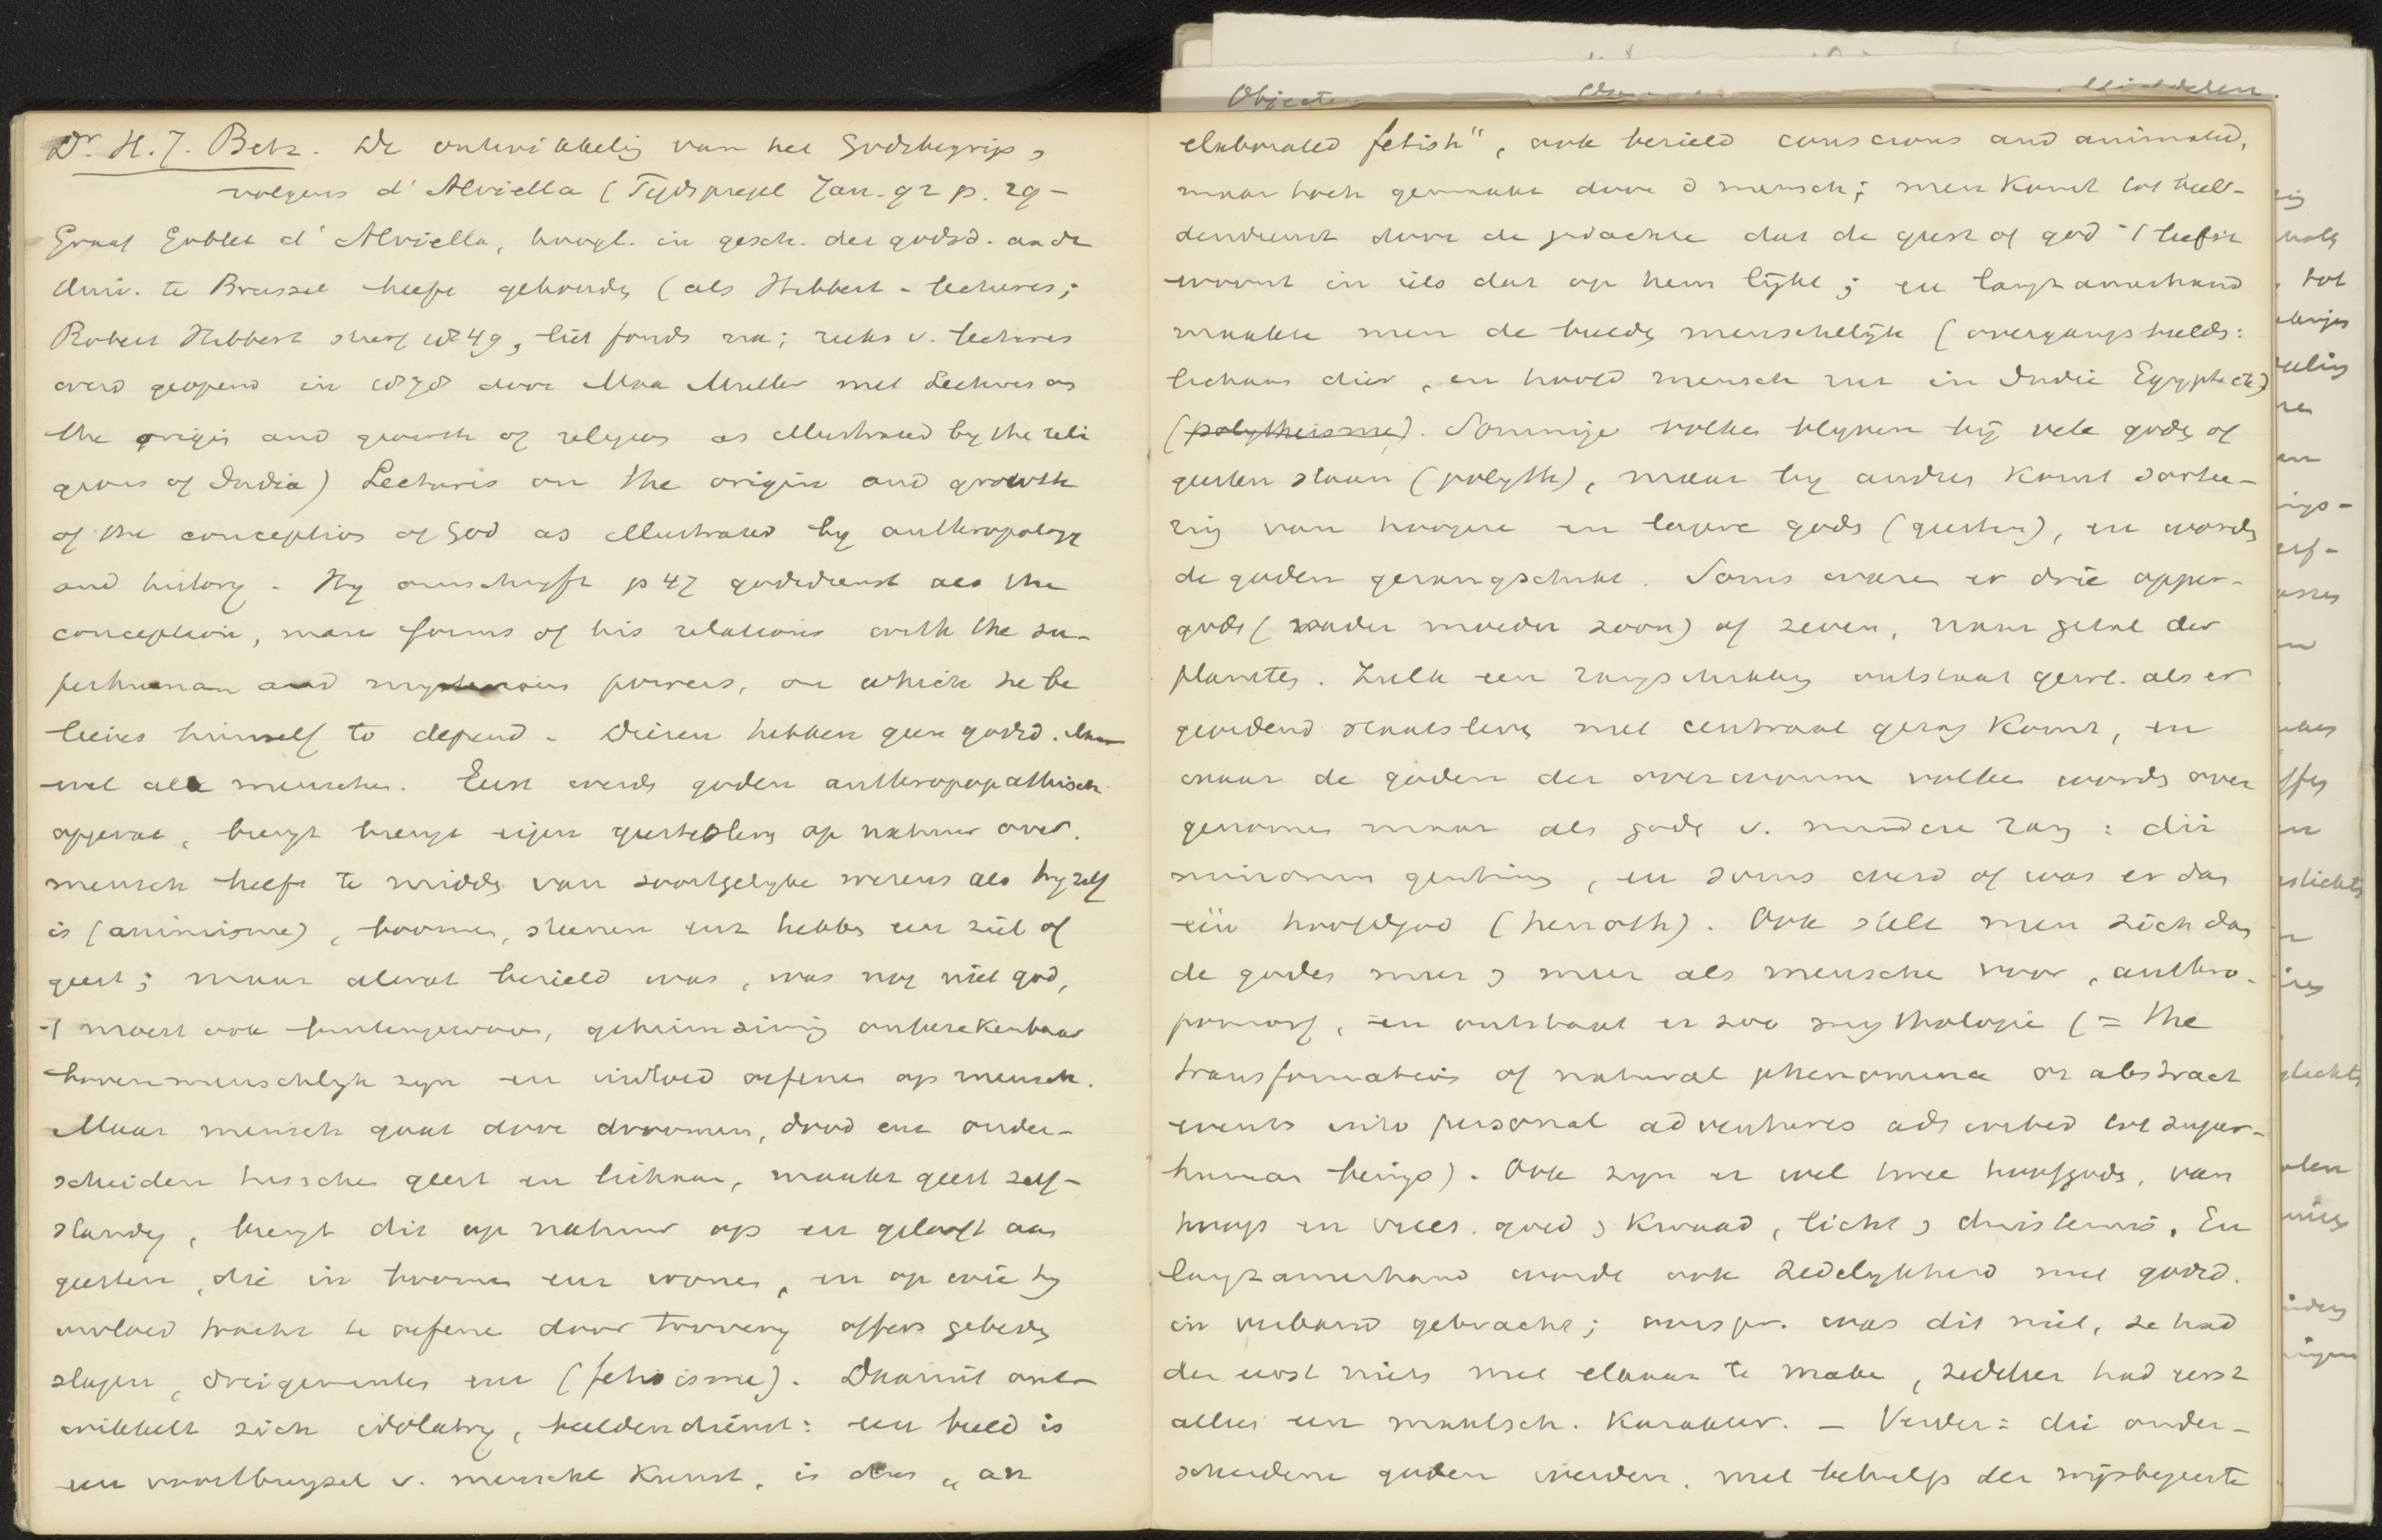 Dr. H. J. Betz. De ontwikkeling van het Godsbegrip,
volgens d'Alviella (Tijdspiegel Jan. 92 p. 29 –
Graaf Goblet d'Alviella, hoogl. in gesch. der godsd. aan de
Univ. te Brussel heeft gehouden (als Hibbert-lectures;
Robert Hibbert stierf 1849, liet fonds na; reeks v. lectures
werd geopend in 1878 door Max Muller met Lectures on
the origin and growth of religion as illustrated by the reli
gions of India) Lectures on the origin and growth
of the conception of God as illustrated by anthropology
and history. Hij omschrijft p 47 godsdienst als the
conception, man forms of his relations with the su-
perhuman and mysterious powers, on which he be
lieves himself to depend. Dieren hebben geen godsd. maar
wel alle menschen. Eerst werden goden anthropopathisch
opgevat, brengt eigen geestesleven op natuur over.
mensch leeft te midden van soortgelijke wezens als hij zelf
is (animisme), boomen, steenen enz hebben een ziel of
geest; maar alwat bezield was, was nog niet god,
't moest ook buitengewoon, geheimzinnig onberekenbaar
bovenmenschlijk zijn en invloed oefenen op mensch.
Maar mensch gaat door droomen, dood enz onder-
scheiden tusschen geest en lichaam, maakt geest zelf-
standig, brengt dit op natuur op en gelooft aan
geesten, die in boomen enz wonen, en op wie hij
invloed tracht te oefenen door toovery offers gebeden
slagen, dreigementen enz (fetisisme). Daaruit ont-
wikkelt zich idolatry, beeldendienst: een beeld is
een voortbrengsel v. menschel kunst, is dus „an
elaborated fetish", ook bezield conscious and animated,
maar toch gemaakt door d mensch; men komt tot beel-
dendienst door de gedachte dat de geest of god 't liefst
woont in iets dat op hem lijkt; en langzamerhand
maakte men de beelden menschelijk (overgangsbeelden:
lichaam dier, en hoofd mensch enz in Indië Egypte etc)
(polytheisme). Sommige volken blijven bij vele goden of
geesten staan (polyth), maar bij andren komt sortee-
ring van hoogere en lagere goden (geesten), en worden
de goden gerangschikt. Soms waren er drie opper-
goden (vader moeder zoon) of zeven, naar getal der
planeten. Zulk een rangschikking ontstaat gewl. als er
geordend staatsleven met centraal gezag komt, en
maar de goden der overwonnen volken worden over
genomen maar als goden v. mindere rang: dii
minorum gentium, en soms werd of was er dan
één hoofdgod (henoth). Ook stelt men zich dan
de goden meer & meer als menschen voor, anthro-
pomorf, en ontstaat er zoo mythologie (= the
transformation of natural phenomena or abstract
events into personal adventures adscribed to super-
human beings). Ook zijn er wel twee hoofdgoden, van
hoop en vrees. goed & kwaad, licht & duisternis. En
langzamerhand wordt ook zedelijkheid met godsd.
in verband gebracht; oorspr. was dit niet, ze had
der eerst niets met elkaar te maken, zedelheid had eerst
alleen een maatsch. karakter. – Verder: die onder-
scheidene goden werden, met behulp der wijsbegeerte